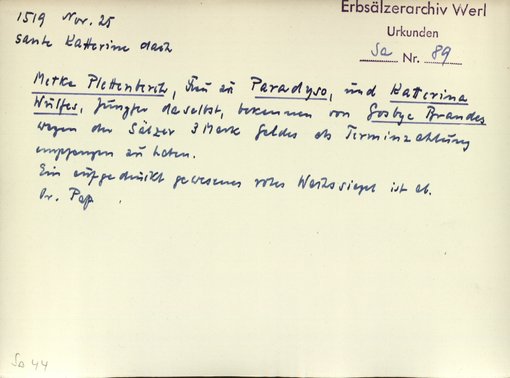 Erbsälzerarchiv Werl
Urkunden
Sa Nr. 89
1519 Nov. 25
sante Katterine dach
Metke Plettenbertz, Frau zu Paradyso, und Katterina
Wulfes, Jungfer daselbst, bekennen von Gosbye Brandes
wegen der Sälzer 3 Mark Geldes als Terminzahlung
empfangen zu haben.
Ein aufgedrückt gewesenes rotes Wachssiegel ist ab.
Or. Pap.
Sa 44